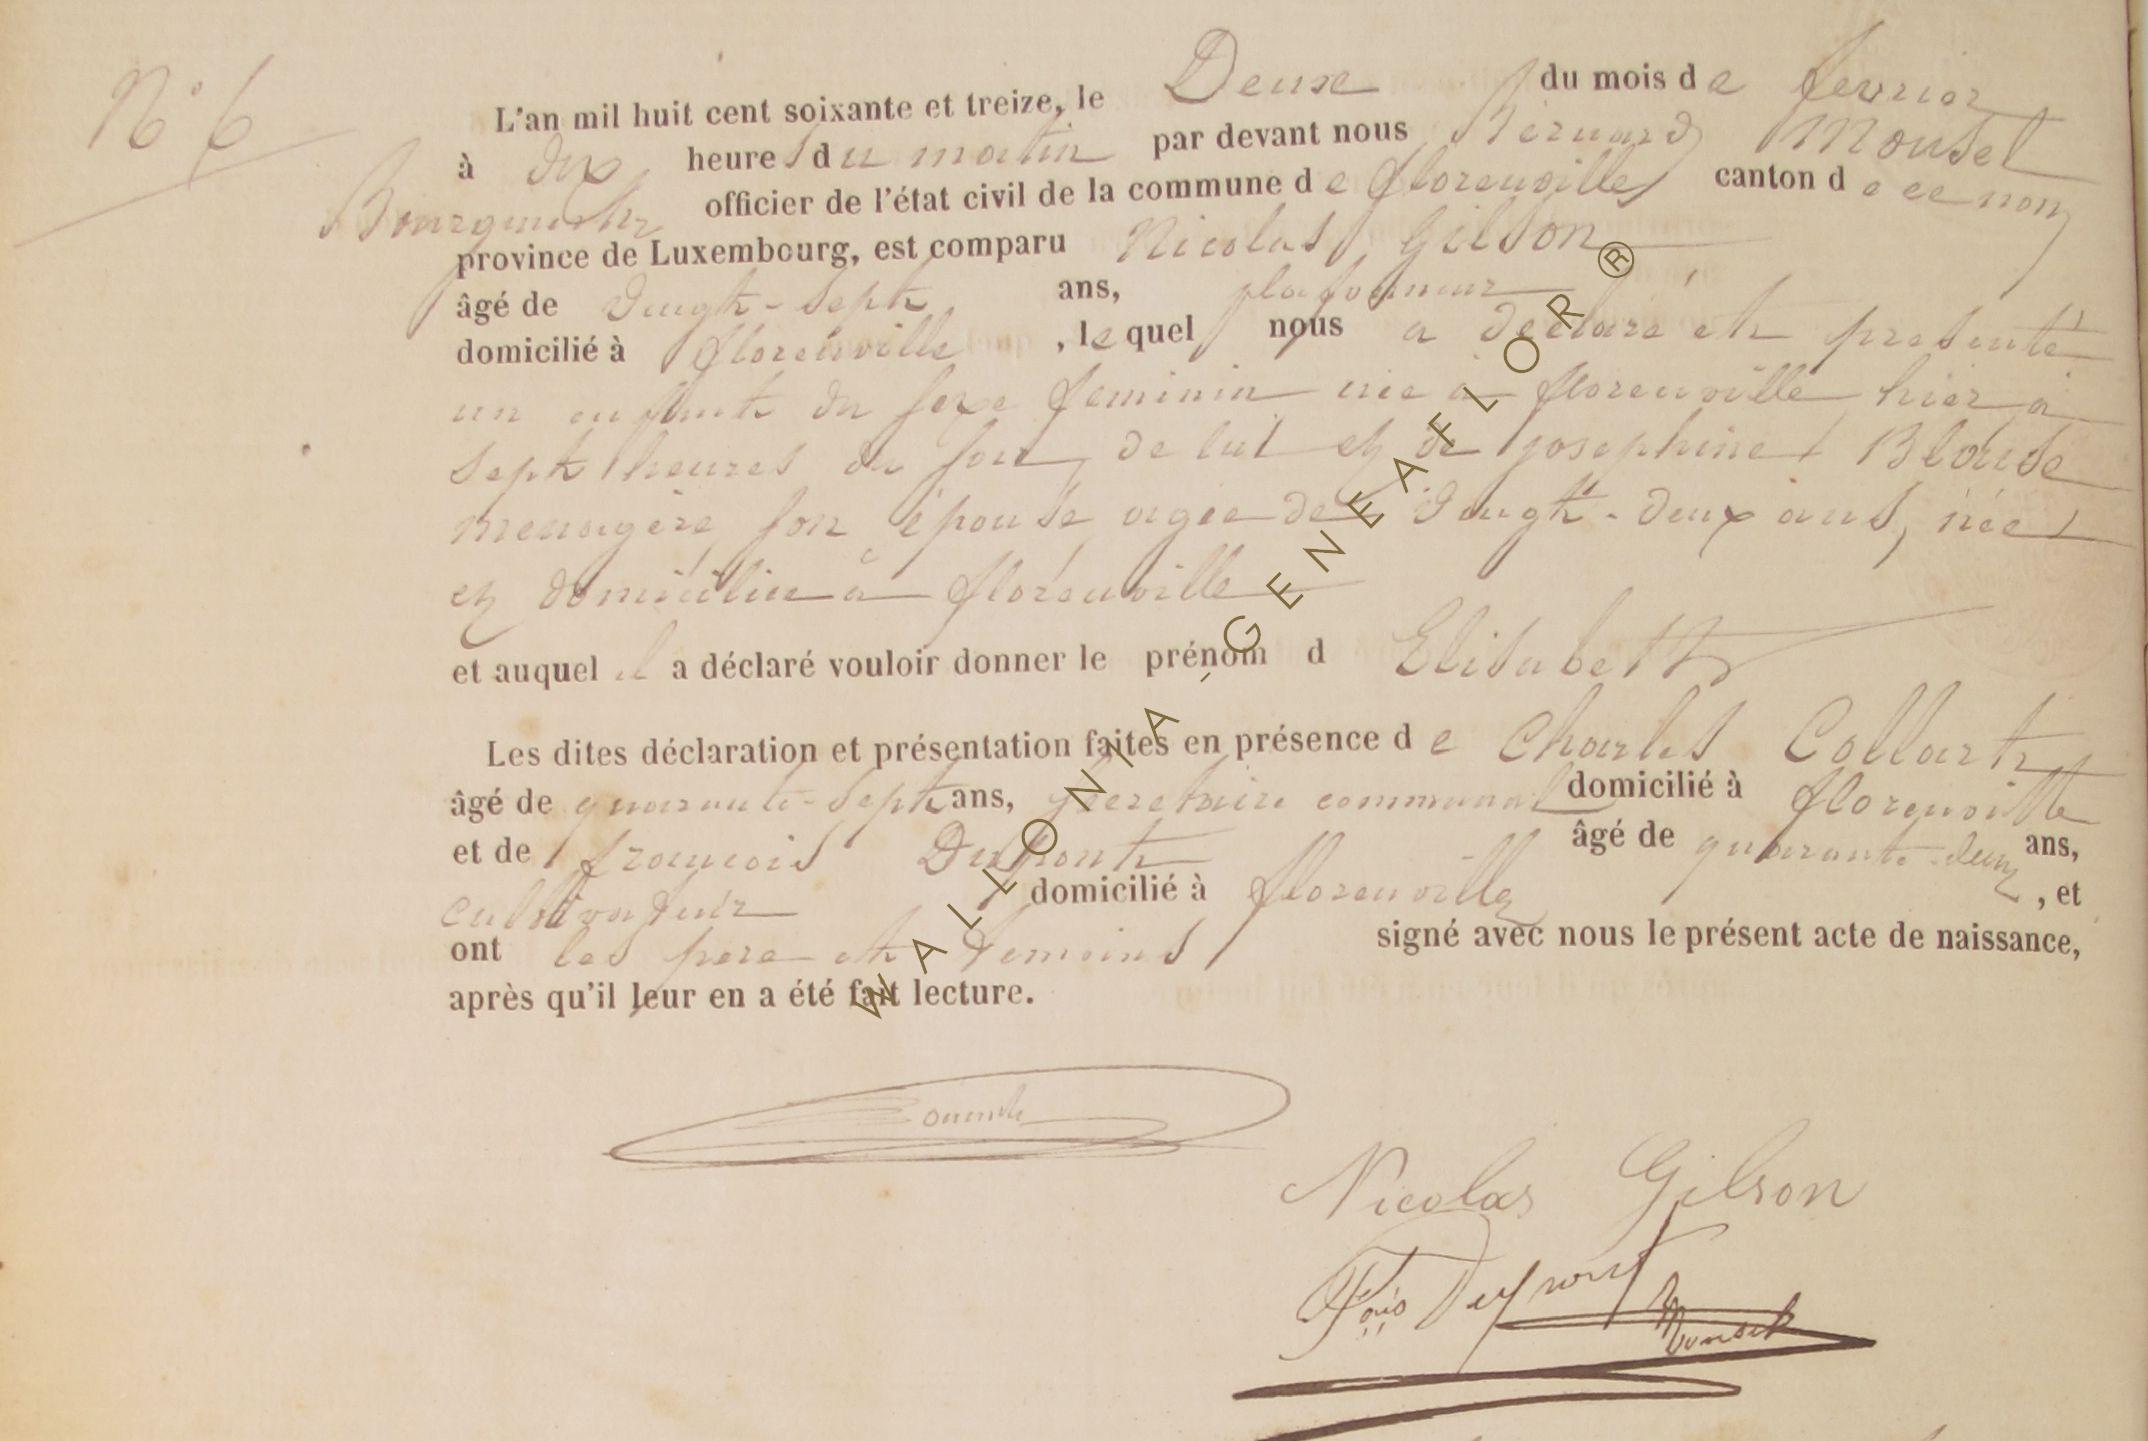 N° 6
L'an mil huit cent soixante et treize, le Deuxe du mois de fevrier
à dix heures du matin par devant nous Bernard Mousel
Bourgmestre officier de l'état civil de la commune de florenville canton de ce nom
province de Luxembourg, est comparu Nicolas Gilson
âgé de Vingt-Sept ans, plafonneur
domicilié à florenville, lequel nous a déclaré et presenté
un enfant du sexe feminin née à florenville hier à
sept heures du soir, de lui et de josephine Blaise
menagère son épouse agée de Vingt-deux ans, née
et domiciliée à florenville
et auquel il a déclaré vouloir donner le prénom d Elisabeth
Les dites déclaration et présentation faites en présence de Charles Collart
âgé de quarante-sept ans, secretaire communal domicilié à florenville
et de françois Dupont âgé de quarante-deux ans,
cultivateur domicilié à florenville, et
ont les pere et temoins signé avec nous le présent acte de naissance,
après qu'il leur en a été fait lecture.
Nicolas Gilson
Fçois Dupont
Mousel
WALLONIA - GENEAFLOR ®